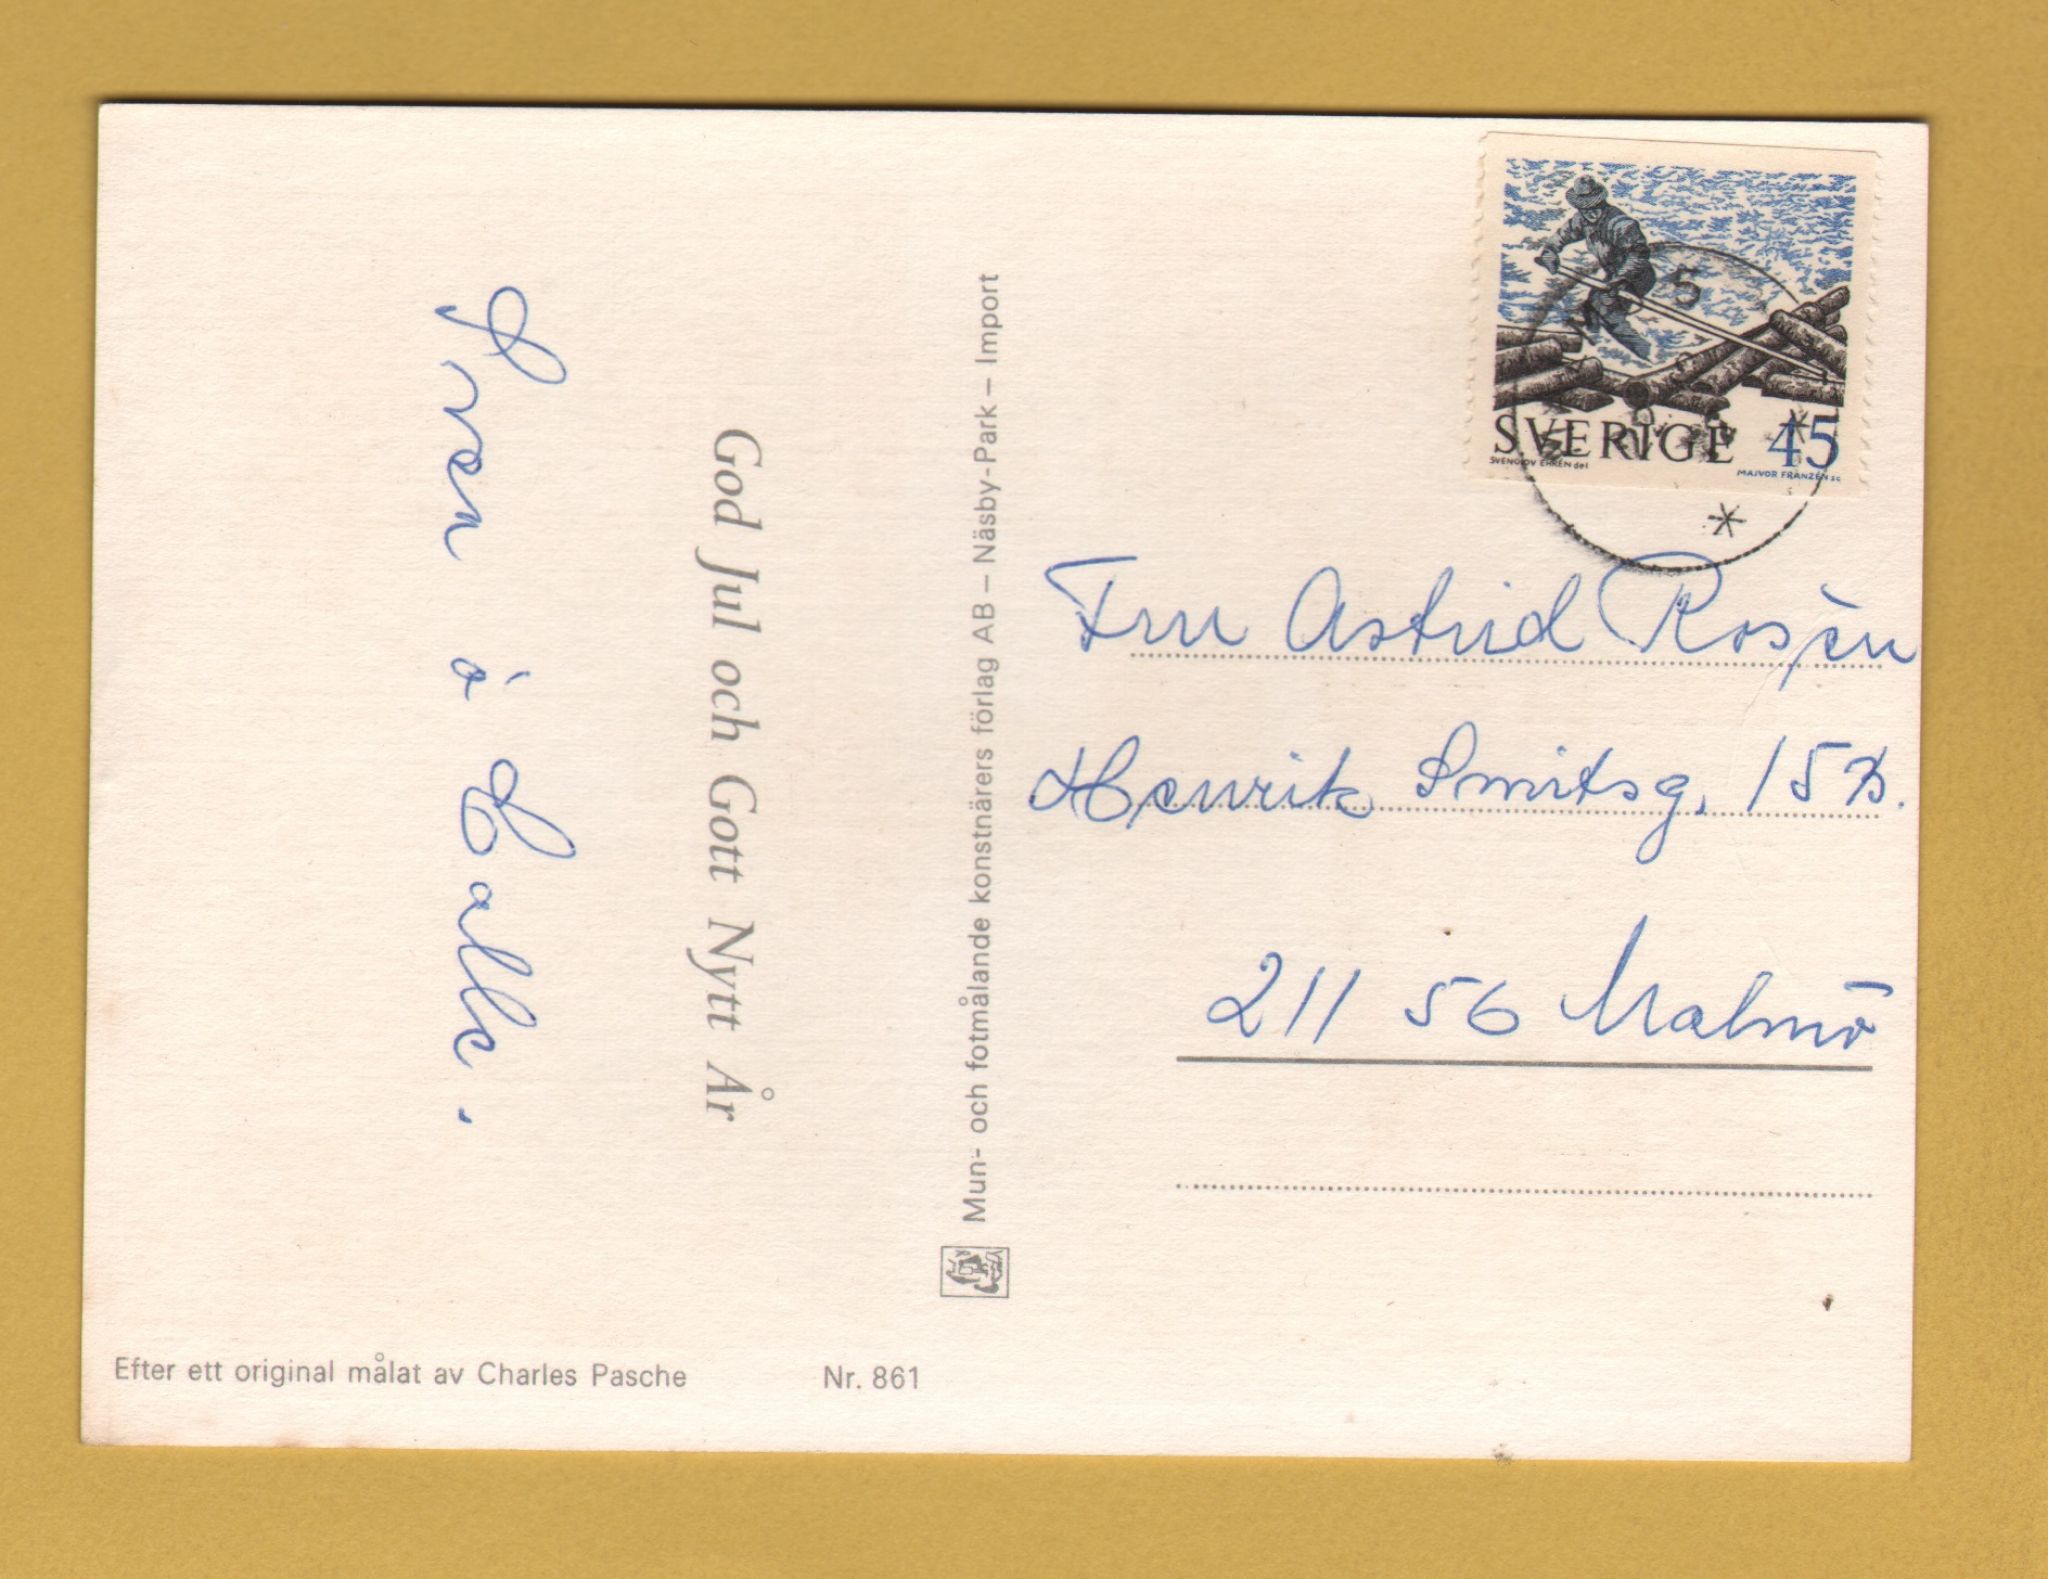 God Jul och Gott Nytt År
Sven o Calle.
Mun- och fotmålande konstnärers förlag AB – Näsby-Park – Import
Efter ett original målat av Charles Pasche
Nr. 861
SVERIGE 45
SVENOLOV EHRÉN del
MAJVOR FRANZÉN sc
5
Fru Astrid Rosén
Henrik Smitsg. 15B.
211 56 Malmö